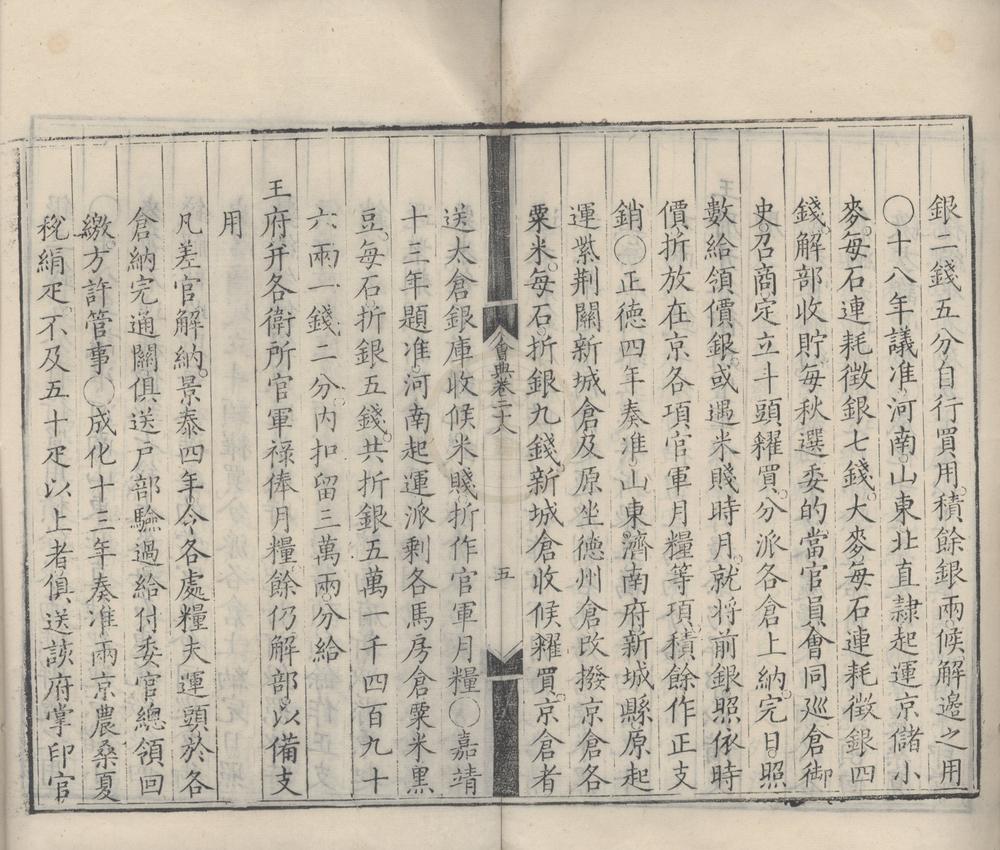 銀二錢五分自行買用積餘銀兩候解邊之用
〇十八年議准河南山東北直隸起運京儲小
麥每石連耗徵銀七錢大麥每石連耗徵銀四
錢解部收貯每秋選委的當官員會同巡倉御
史召商定立斗頭糴買分派各倉上納完日照
數給領價銀或遇米賤時月就將前銀照依時
價折放在京各項官軍月糧等項積餘作正支
銷〇正德四年奏准山東濟南府新城縣原起
運紫荆關新城倉及原坐德州倉改撥京倉各
粟米每石折銀九錢新城倉收候糴買京倉者
會典卷二十八
五
送太倉銀庫收候米賤折作官軍月糧〇嘉靖
十三年題准河南起運派剩各馬房倉粟米黑
豆每石折銀五錢共折銀五萬一千四百九十
六兩一錢二分內扣留三萬兩分給
王府并各衛所官軍祿俸月糧餘仍解部以備支
用
凡差官解納景泰四年令各處糧夫運頭於各
倉納完通關俱送戶部驗過給付委官總領回
繳方許管事〇成化十三年奏准兩京農桑夏
稅絹疋不及五十疋以上者俱送該府掌印官